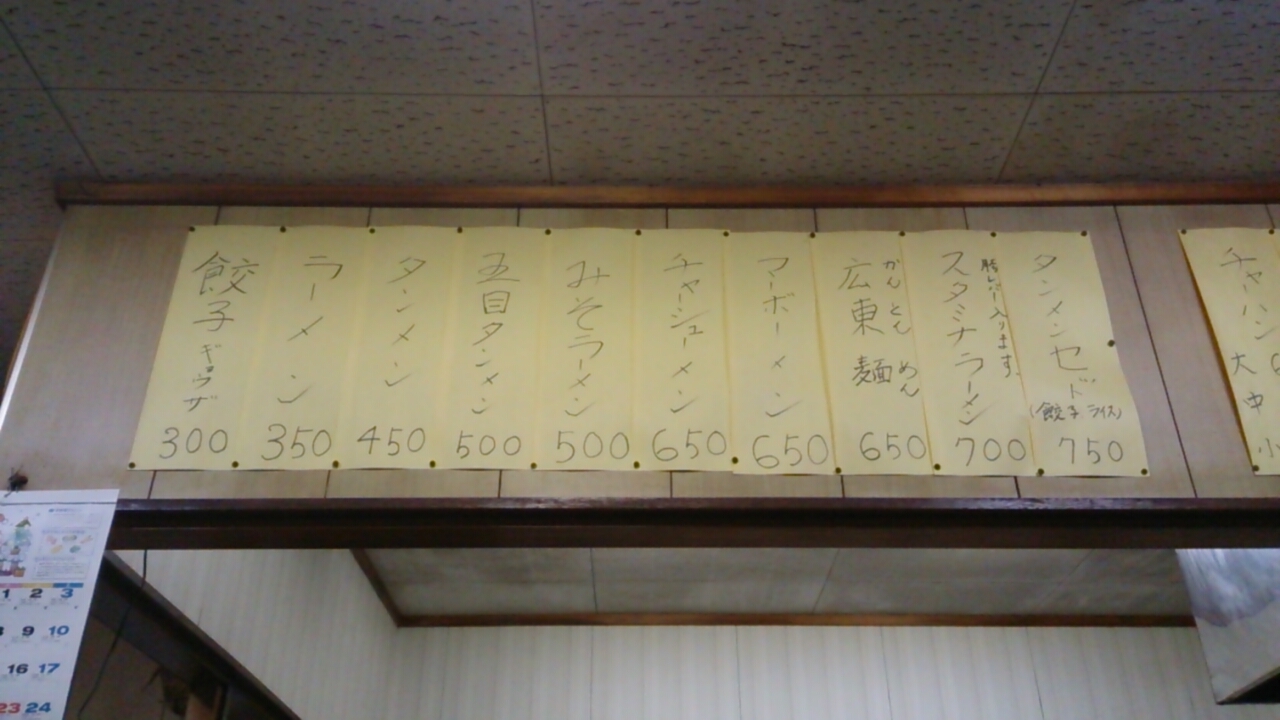 餃子 ギョウザ
300
ラーメン
350
タンメン
450
五目タンメン
500
みそラーメン
500
チャーシューメン
650
マーボーメン
650
広東麺
かんとんめん
650
スタミナラーメン
豚レバー入ります。
700
タンメンセット
(餃子 ライス)
750
チャーハン
大
中
小
1 2 3
9 10
16 17
23 24